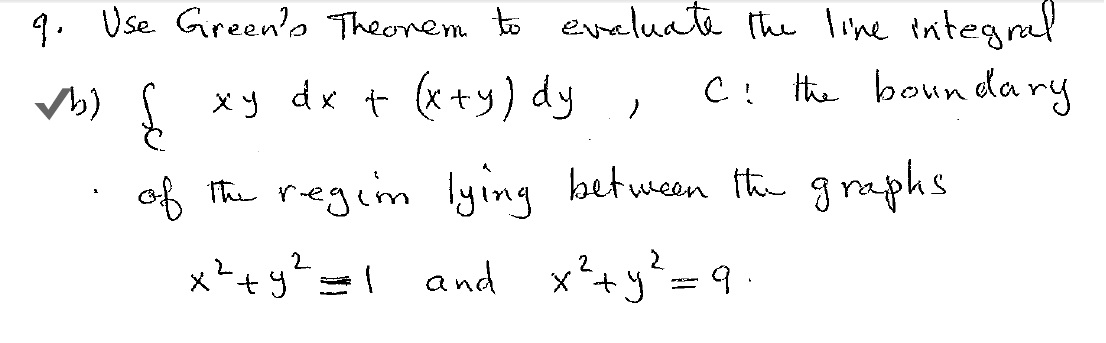 9. Use Green's Theorem to evaluate the line integral
✓b) ∫_C xy dx + (x+y) dy , C: the boundary
of the region lying between the graphs
x² + y² = 1 and x² + y² = 9.